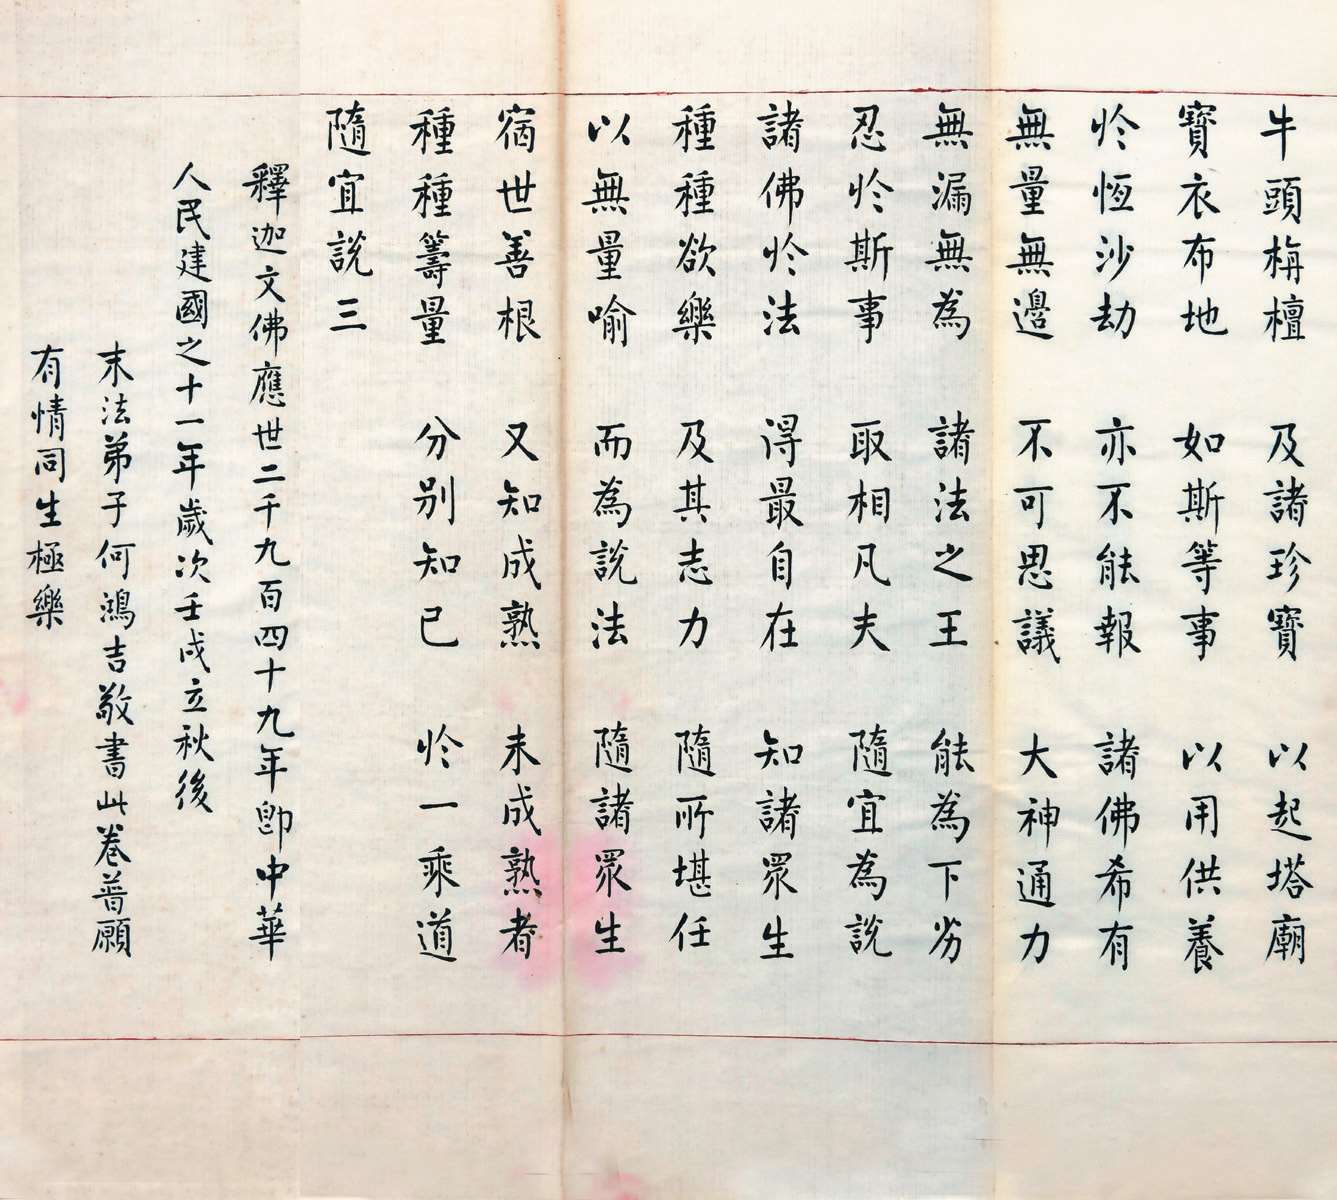 牛頭栴檀 及諸珍寶 以起塔廟
寶衣布地 如斯等事 以用供養
於恆沙劫 亦不能報 諸佛希有
無量無邊 不可思議 大神通力
無漏無為 諸法之王 能為下劣
忍於斯事 取相凡夫 隨宜為說
諸佛於法 得最自在 知諸眾生
種種欲樂 及其志力 隨所堪任
以無量喻 而為說法 隨諸眾生
宿世善根 又知成熟 未成熟者
種種籌量 分別知已 於一乘道
隨宜說三
釋迦文佛應世二千九百四十九年卽中華
人民建國之十一年歲次壬戌立秋後
末法弟子何鴻吉敬書此卷普願
有情同生極樂